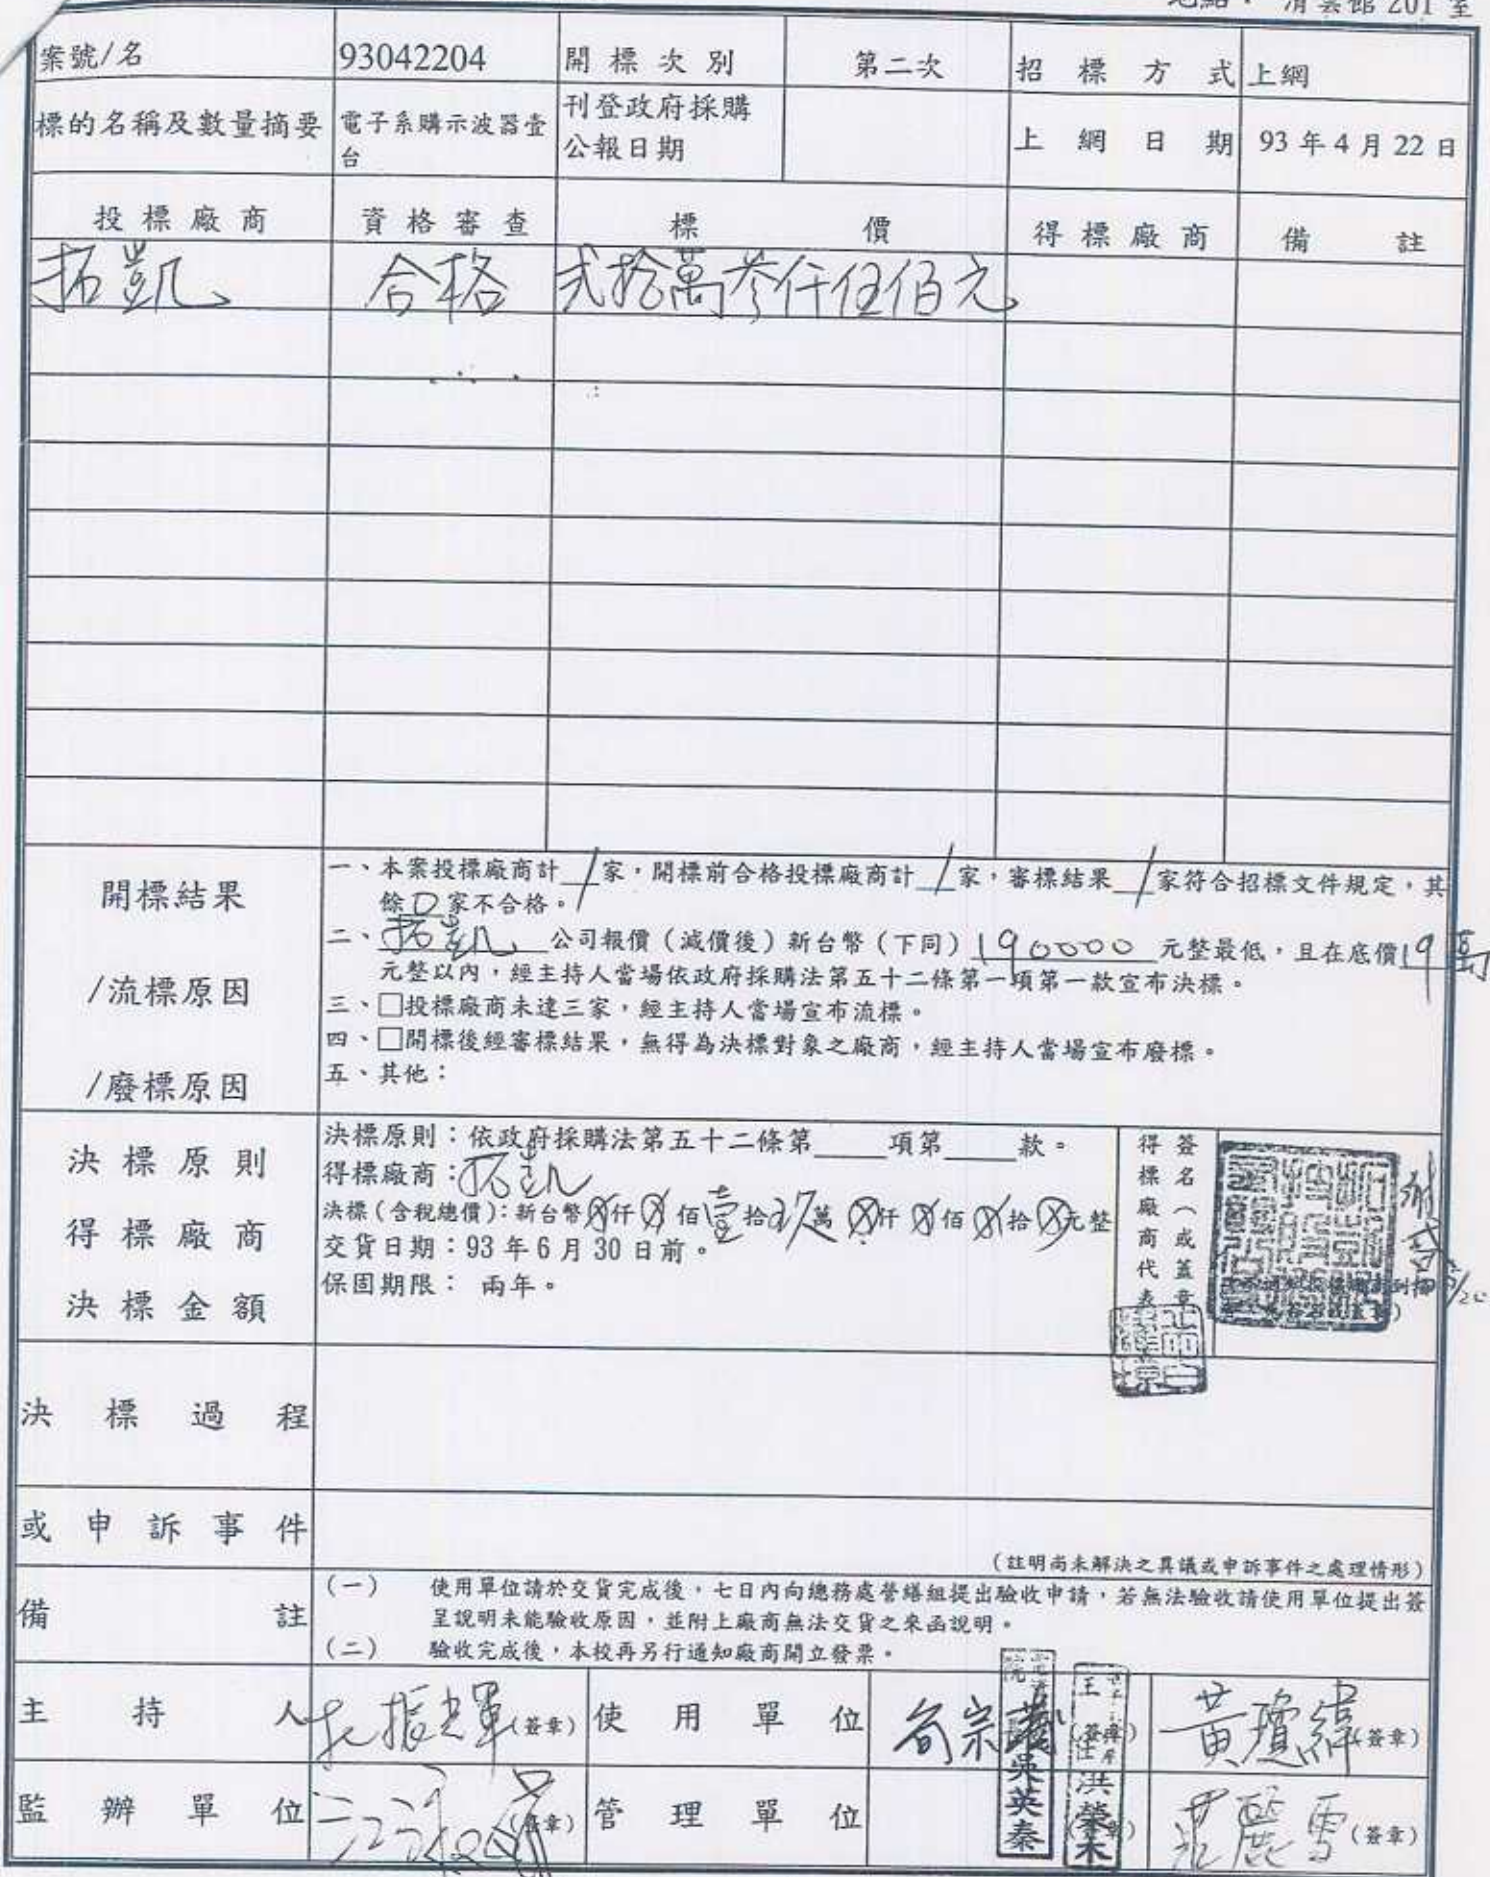 地點： 清雲館 201 室
案號/名 93042204 開標次別 第二次 招標方式 上網
標的名稱及數量摘要 電子系購示波器壹台 刊登政府採購公報日期 上網日期 93 年 4 月 22 日
投標廠商 資格審查 標價 得標廠商 備註
拓凱 合格 弍拾萬叁仟伍佰元
開標結果
/流標原因
/廢標原因
一、本案投標廠商計 1 家，開標前合格投標廠商計 1 家，審標結果 1 家符合招標文件規定，其
餘 0 家不合格。
二、拓凱 公司報價（減價後）新台幣（下同）190000 元整最低，且在底價 19萬
元整以內，經主持人當場依政府採購法第五十二條第一項第一款宣布決標。
三、□投標廠商未達三家，經主持人當場宣布流標。
四、□開標後經審標結果，無得為決標對象之廠商，經主持人當場宣布廢標。
五、其他：
決標原則
得標廠商
決標金額
決標原則：依政府採購法第____項第____款。
得標廠商：拓凱
決標（含稅總價）：新台幣⊗仟⊗佰壹拾玖萬⊗仟⊗佰⊗拾⊗元整
交貨日期：93 年 6 月 30 日前。
保固期限： 兩年。
得標廠商代表
簽名（或蓋章
決標過程
或申訴事件
（註明尚未解決之異議或申訴事件之處理情形）
備註
（一） 使用單位請於交貨完成後，七日內向總務處營繕組提出驗收申請，若無法驗收請使用單位提出簽
呈說明未能驗收原因，並附上廠商無法交貨之來函說明。
（二） 驗收完成後，本校再另行通知廠商開立發票。
主持人 （簽章） 使用單位 黃瓊緯（簽章）
監辦單位 （簽章） 管理單位 吳英秦 洪榮木 麗雪（簽章）